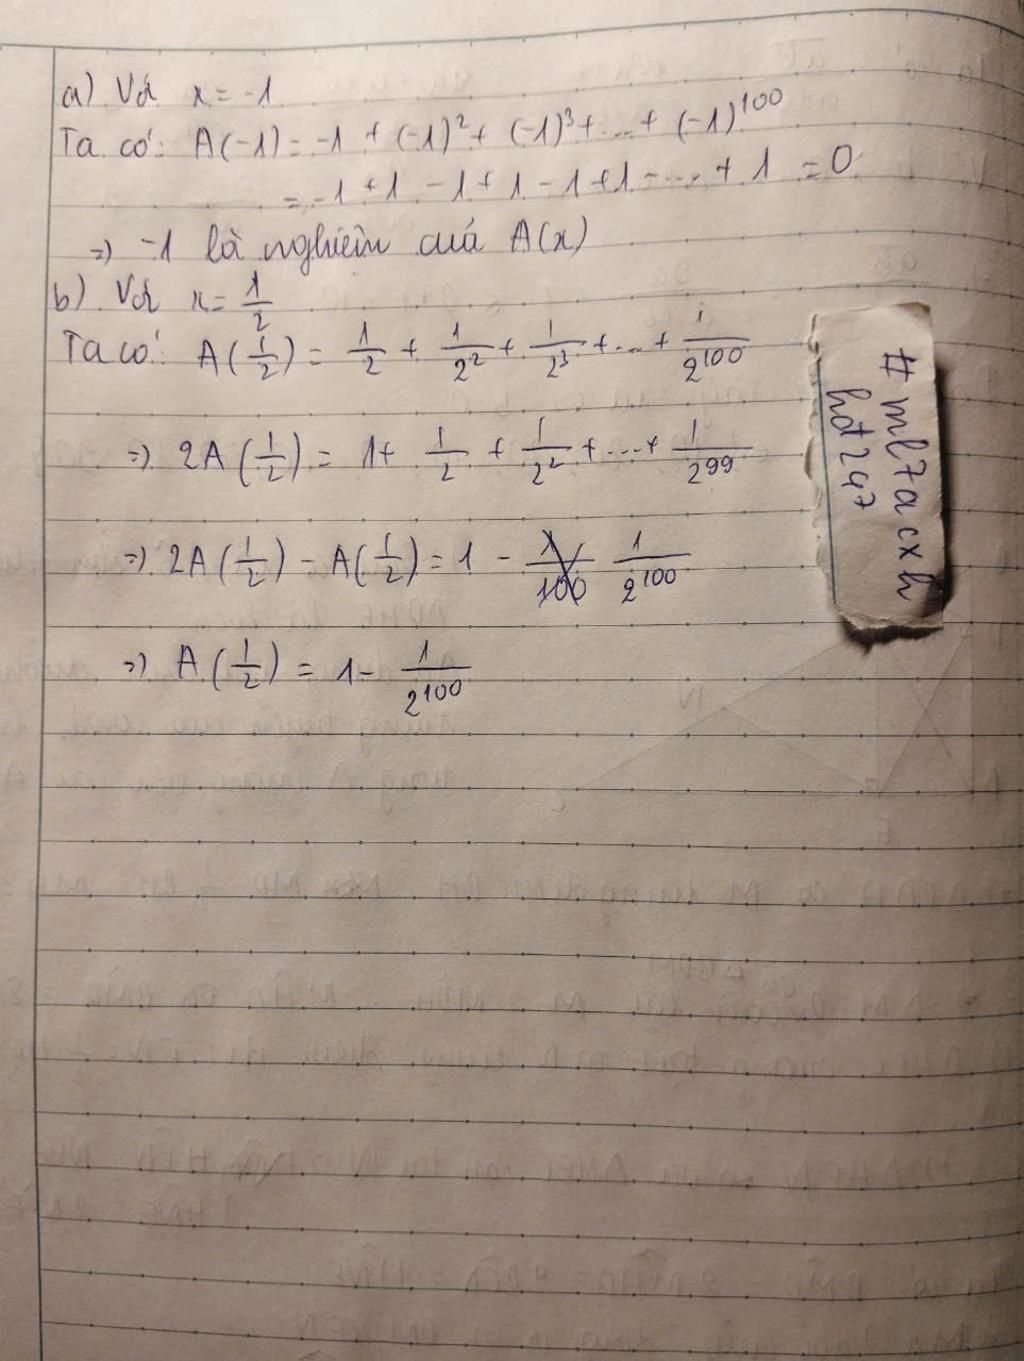 a) Với x = -1
Ta có: A(-1) = -1 + (-1)² + (-1)³ + ... + (-1)¹⁰⁰
= -1 + 1 - 1 + 1 - 1 + 1 - ... + 1 = 0
=> -1 là nghiệm của A(x)
b) Với x = 1/2
Ta có: A(1/2) = 1/2 + 1/2² + 1/2³ + ... + 1/2¹⁰⁰
=> 2A(1/2) = 1 + 1/2 + 1/2² + ... + 1/2⁹⁹
=> 2A(1/2) - A(1/2) = 1 - 1/2¹⁰⁰
=> A(1/2) = 1 - 1/2¹⁰⁰
# ml7acxh
hdt247